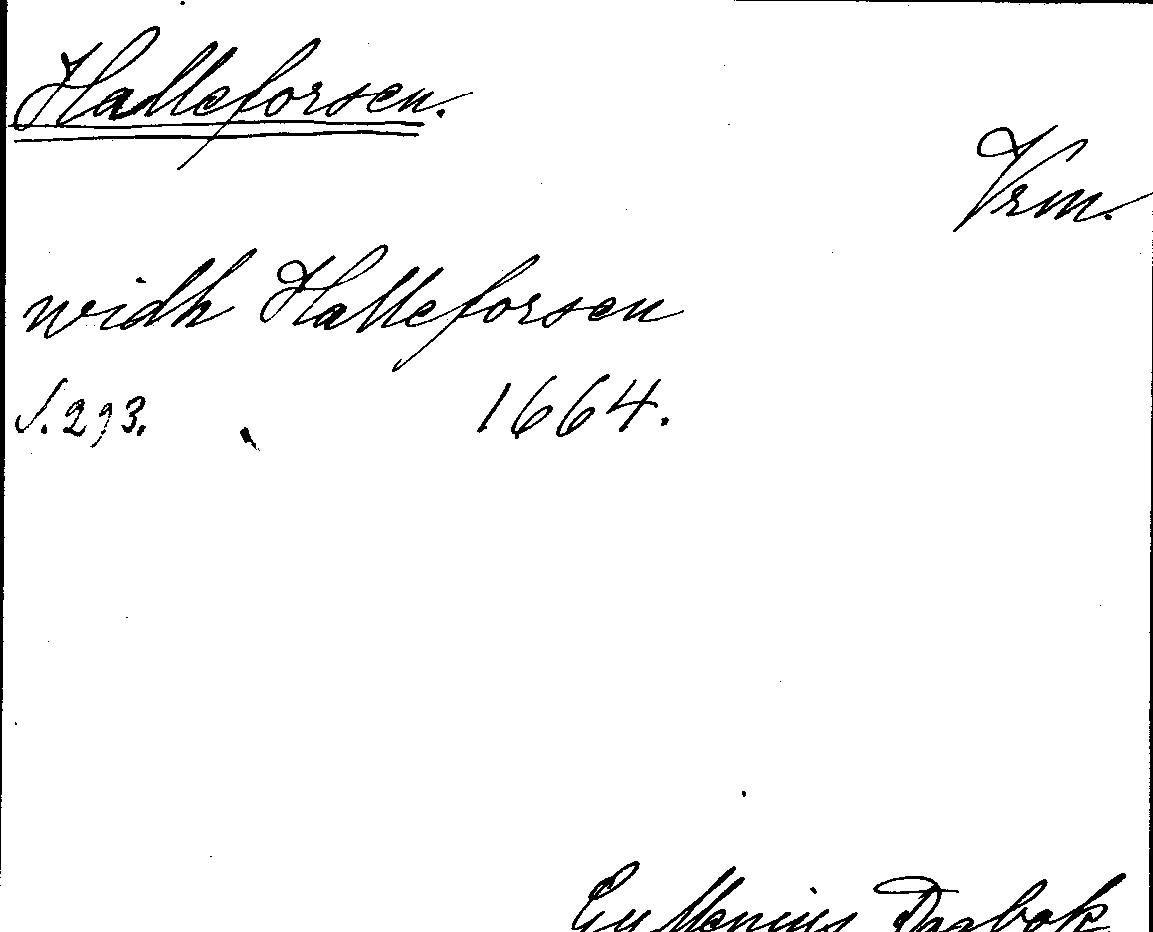 Halleforsen.
Vrm.
widh Halleforsen
S. 293. 1664.
Gyllenius Dagbok